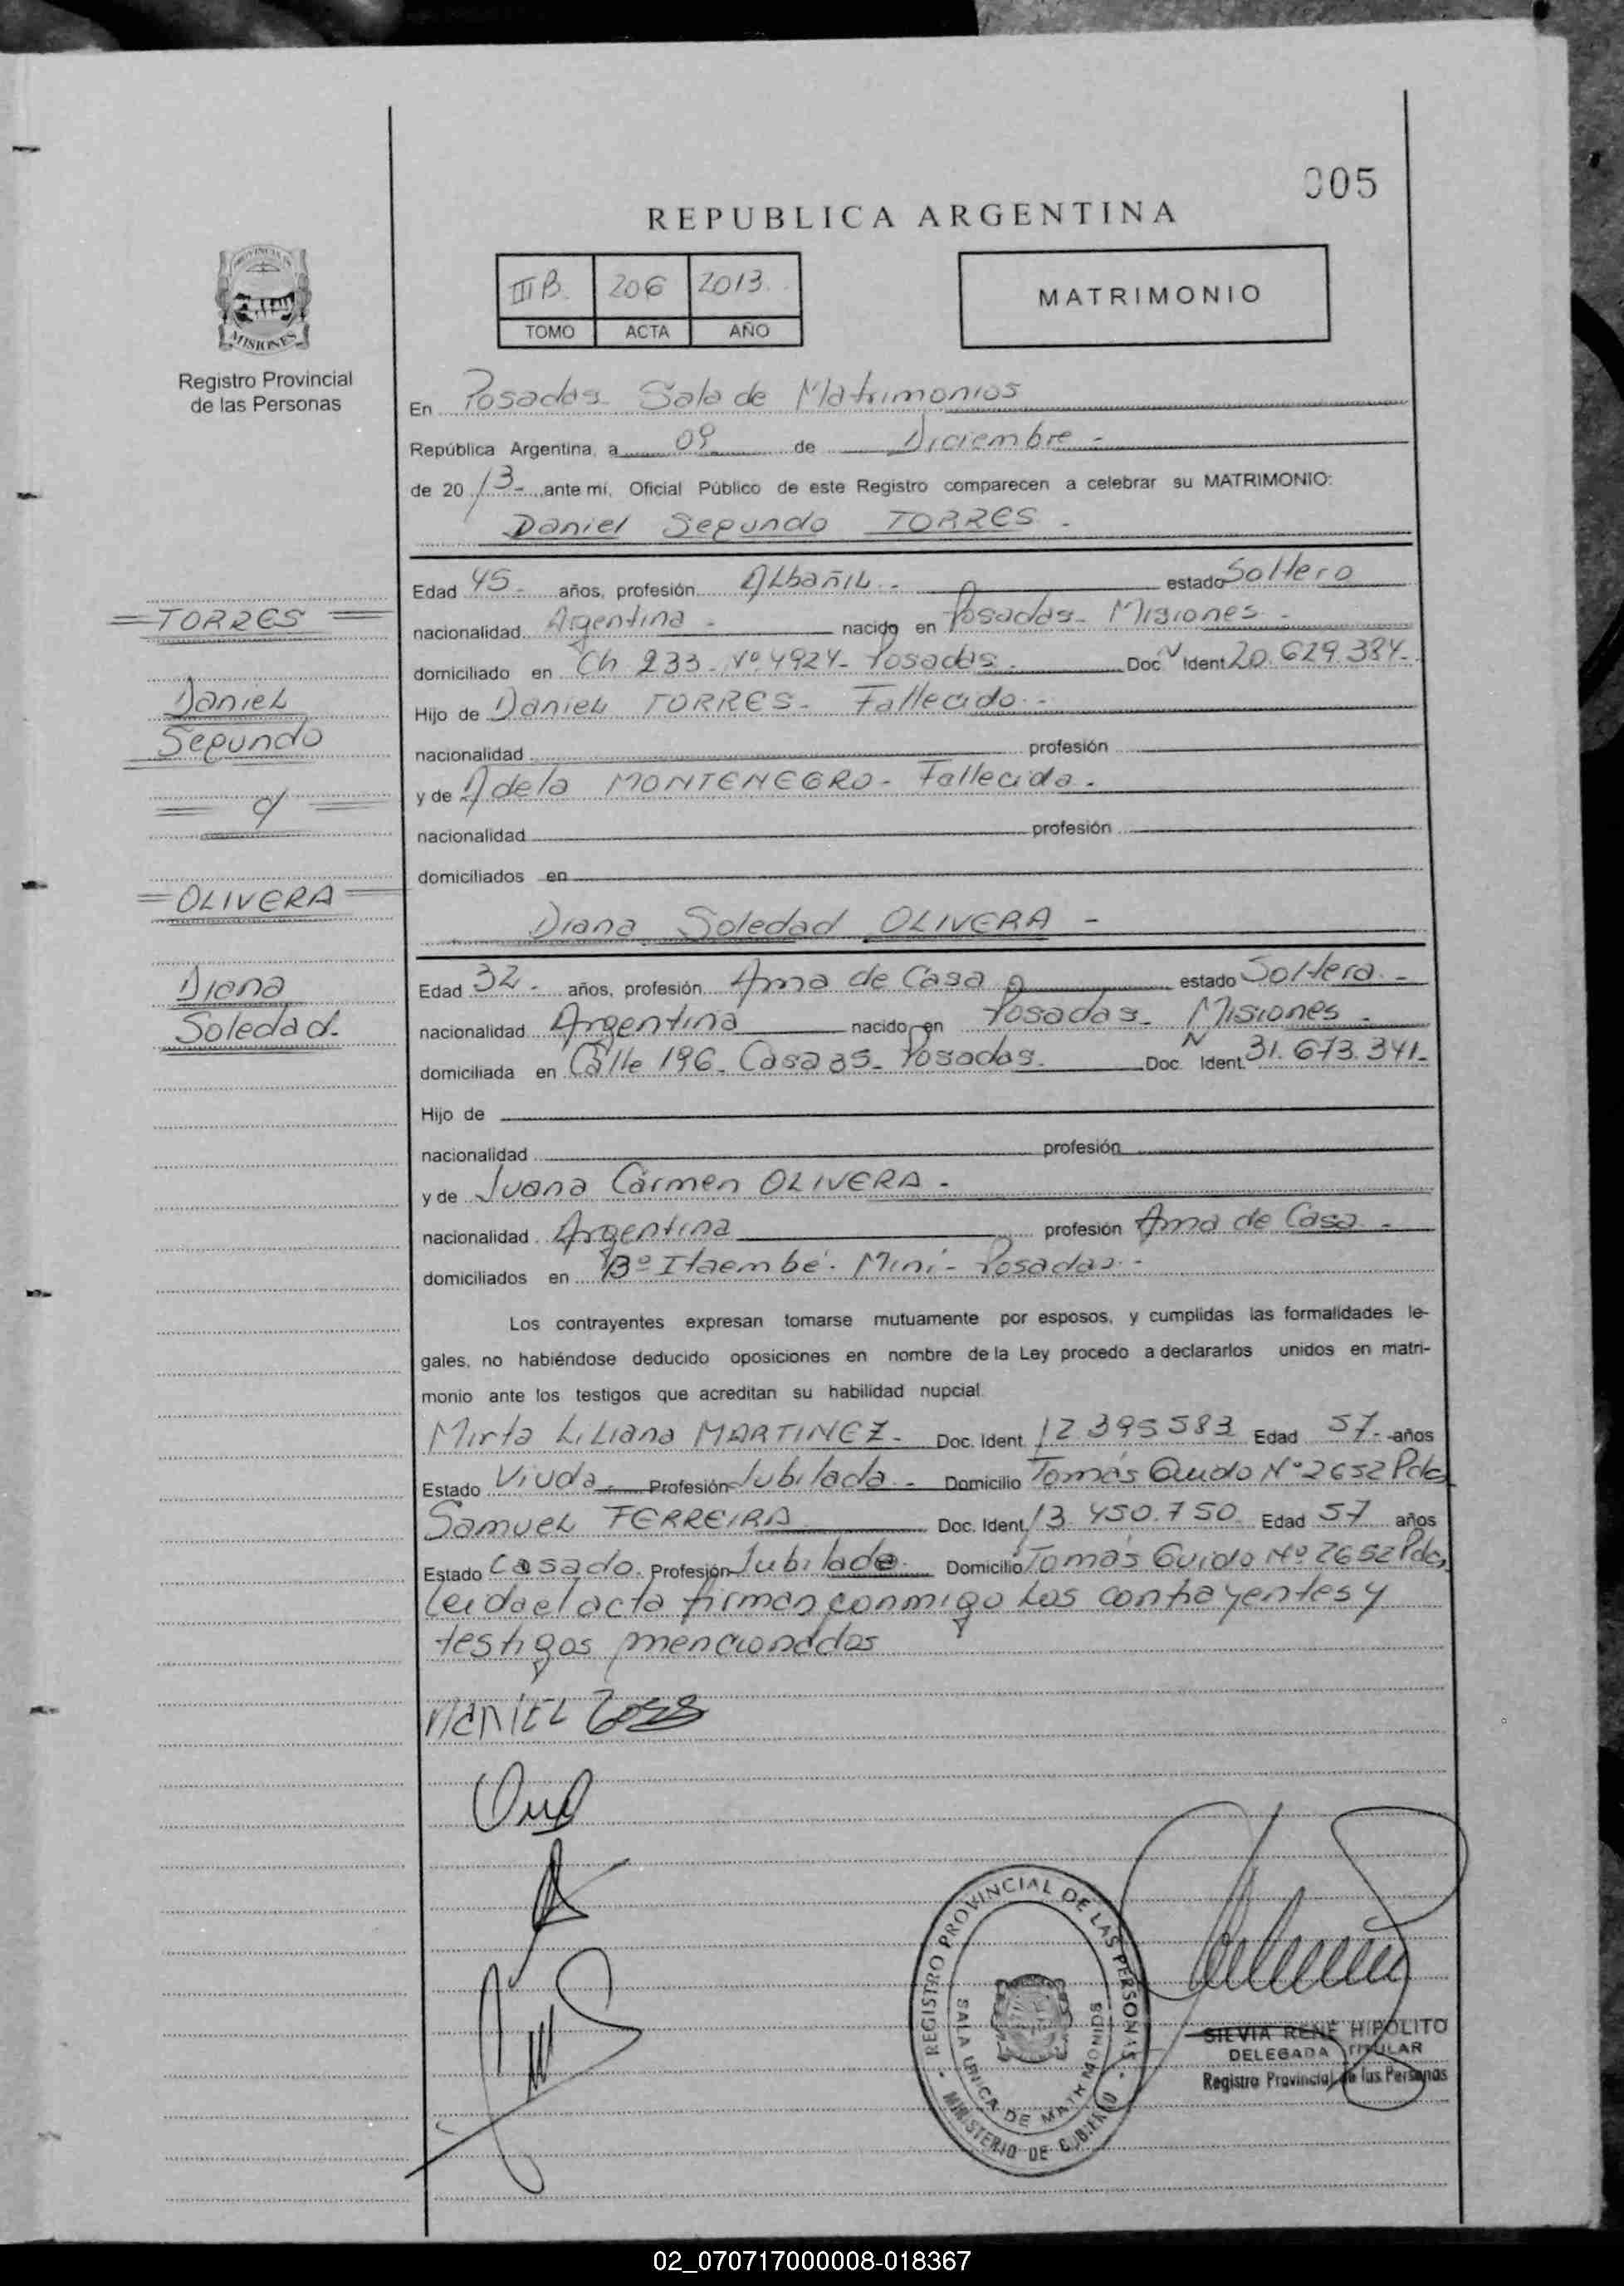 005
REPUBLICA ARGENTINA
III B. 206 2013.
TOMO ACTA AÑO
MATRIMONIO
MISIONES
Registro Provincial
de las Personas
En Posadas Sala de Matrimonios
República Argentina, a 09 de Diciembre -
de 20 13- ante mi, Oficial Público de este Registro comparecen a celebrar su MATRIMONIO:
Daniel Segundo TORRES -
Edad 45- años, profesión Albañil - estado Soltero
nacionalidad Argentina - nacido en Posadas- Misiones -
domiciliado en Ch 233- Nº 4924- Posadas. Doc N Ident 20.629.384-
Hijo de Daniel TORRES- Fallecido.-
nacionalidad profesión
y de Adela MONTENEGRO- Fallecida.-
nacionalidad profesión
domiciliados en
= TORRES =
Daniel
Segundo
= c/ =
= OLIVERA =
Diana
Soledad.
Diana Soledad OLIVERA -
Edad 32- años, profesión Ama de Casa estado Soltera -
nacionalidad Argentina nacido en Posadas- Misiones -
domiciliada en Calle 196- Casa 35- Posadas. Doc. N Ident. 31.673.341-
Hijo de
nacionalidad profesión
y de Juana Carmen OLIVERA -
nacionalidad Argentina profesión Ama de Casa -
domiciliados en Bº Itaembé- Mini- Posadas.-
Los contrayentes expresan tomarse mutuamente por esposos, y cumplidas las formalidades le-
gales, no habiéndose deducido oposiciones en nombre de la Ley procedo a declararlos unidos en matri-
monio ante los testigos que acreditan su habilidad nupcial.
Mirta Liliana MARTINEZ- Doc. Ident. 12 395583 Edad 57- años
Estado Viuda- Profesión Jubilada- Domicilio Tomás Guido Nº 2652 Pdas
Samuel FERREIRA Doc. Ident. 13.450.750 Edad 57 años
Estado Casado. Profesión Jubilado Domicilio Tomás Guido Nº 2652 Pdas,
Leida el acta firman conmigo los contrayentes y
testigos mencionados
DANIEL
REGISTRO PROVINCIAL DE LAS PERSONAS
SALA UNICA DE MATRIMONIOS
MINISTERIO DE GOBIERNO
SILVIA RENÉ HIPOLITO
DELEGADA TITULAR
Registro Provincial de las Personas
02_070717000008-018367